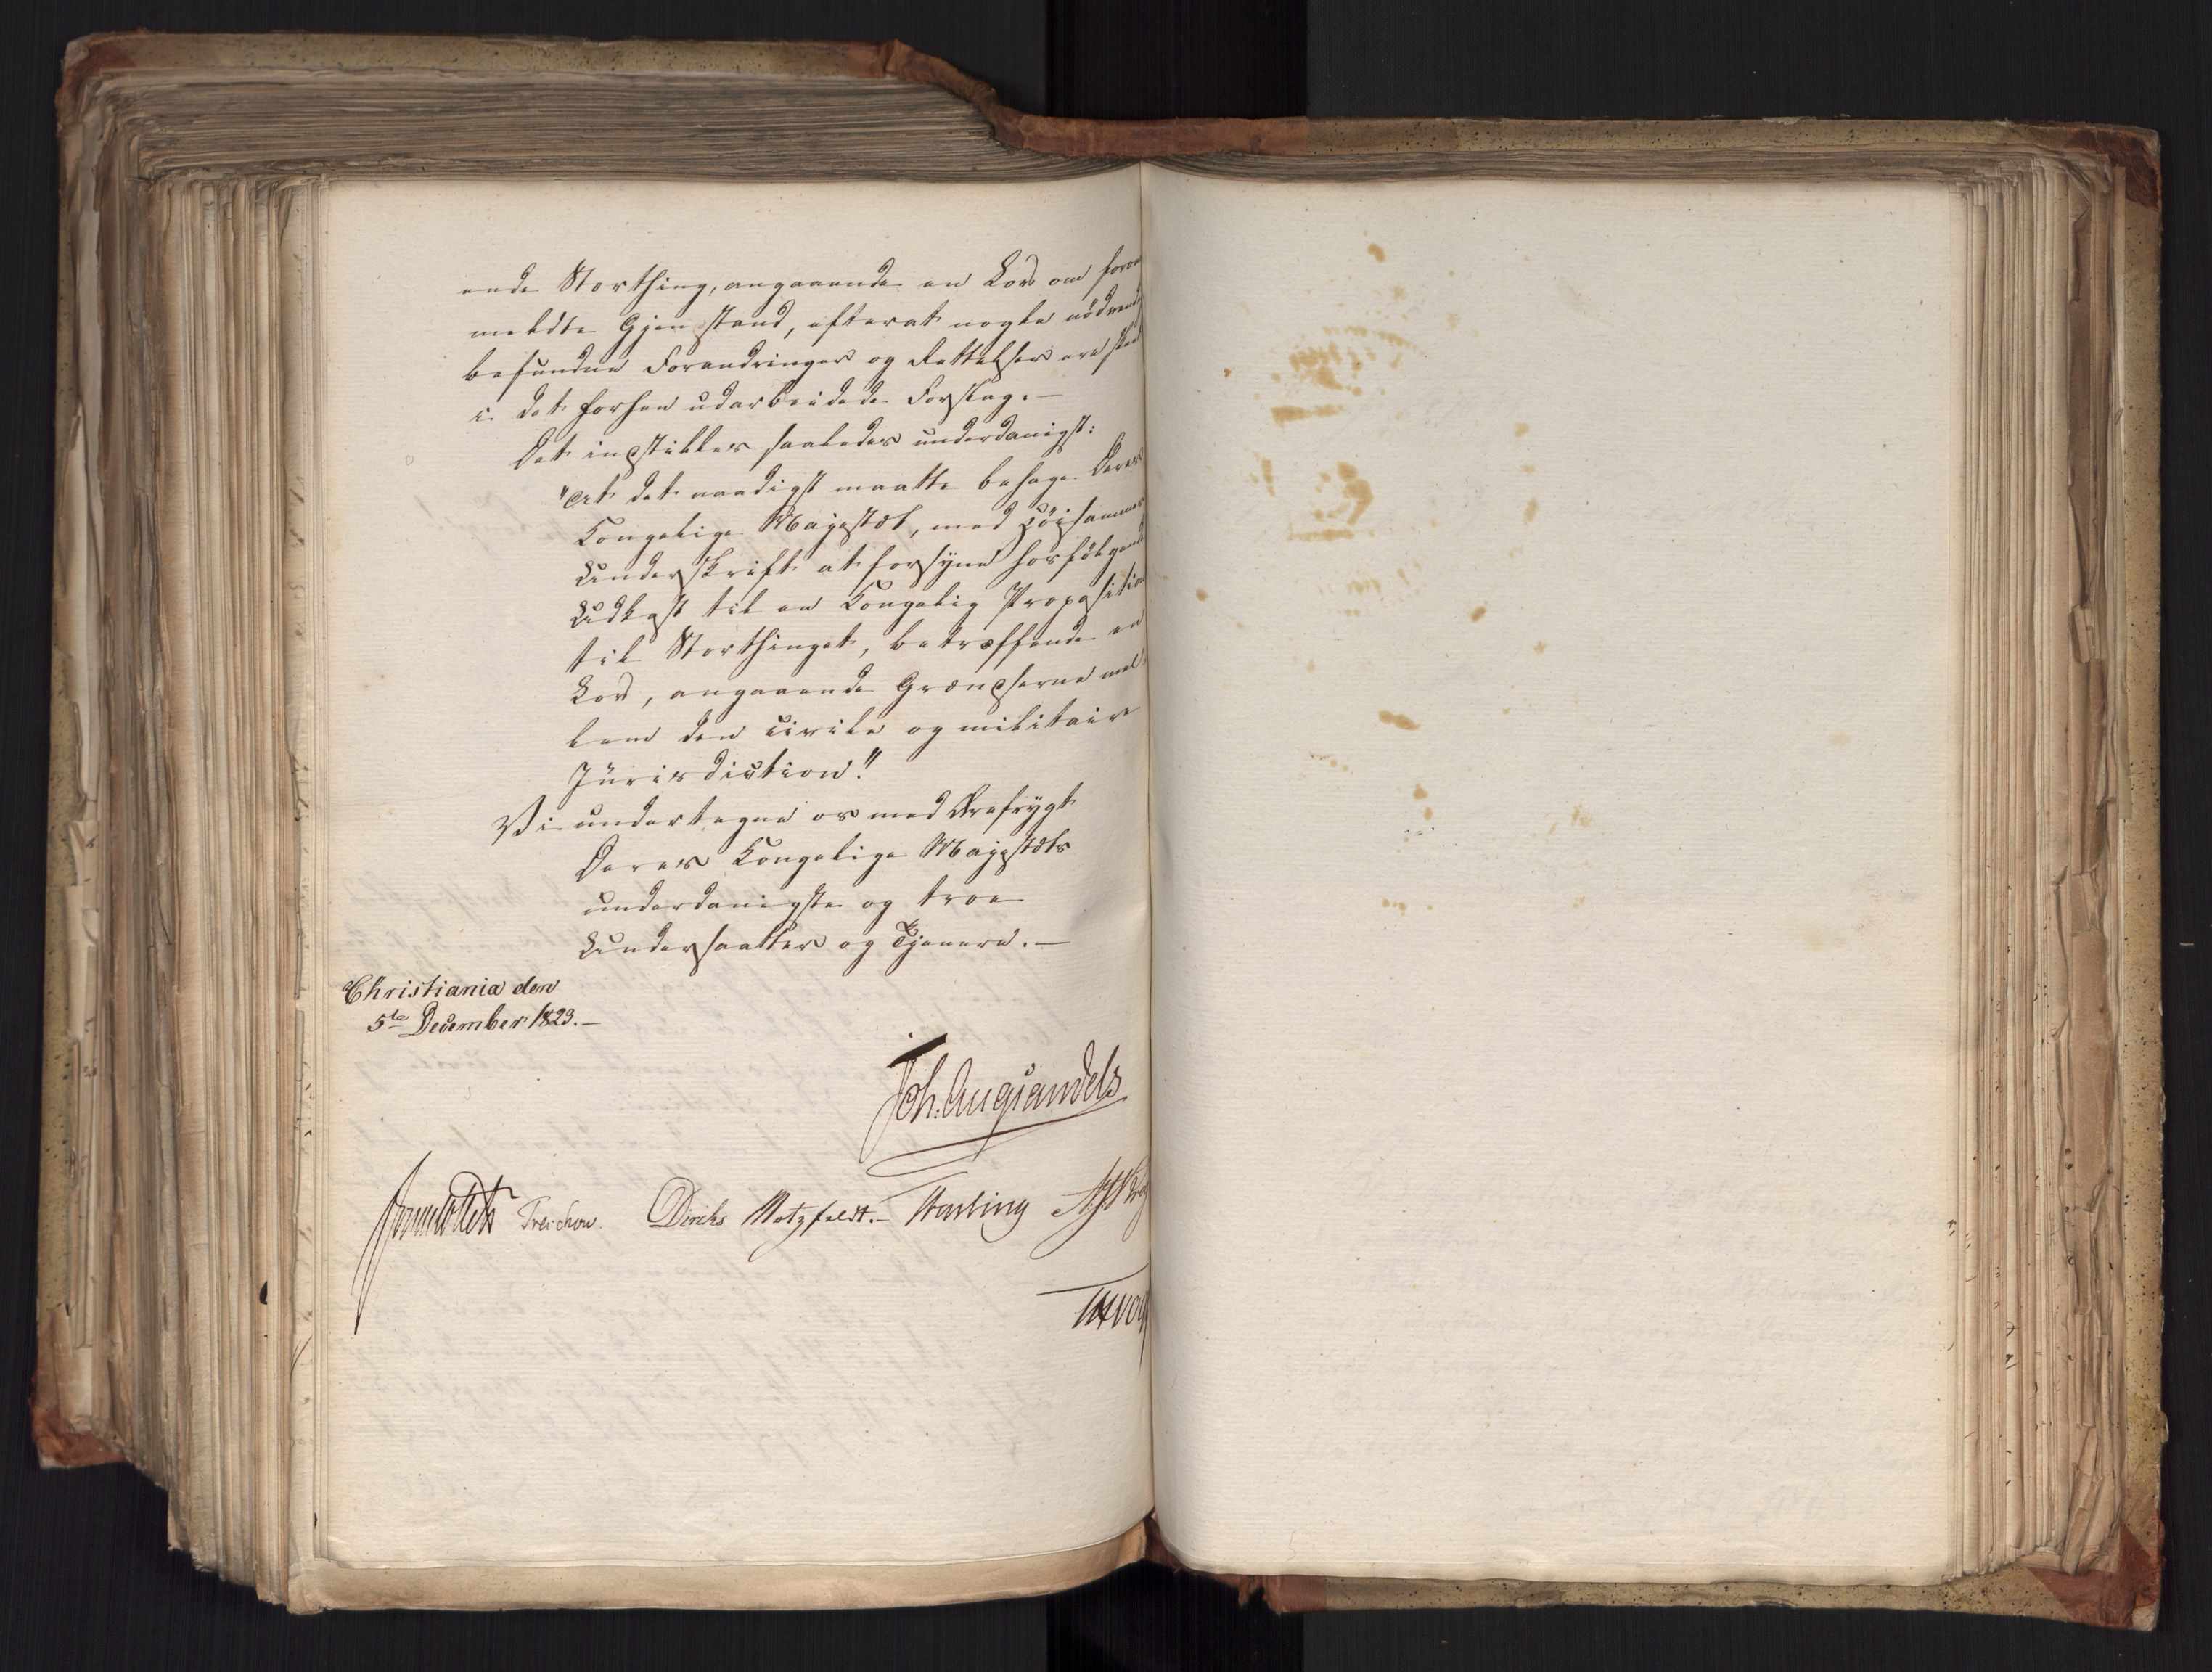 ende Storthing, angaaende en Lov om foran
meldte Gjenstand, efterat nogle nödvend
befundne Forandringer og Rettelser ere skeet
i det forhen udarbeidede Forslag. —
Det indstilles saaledes underdanigst:
"At det naadigst maatte behage Deres
Kongelige Majestæt, med Höisammes
Underskrift at forsyne hosfölgende
Udkast til en Kongelig Proposition
til Storthinget, betræffende en
Lov, angaaende Grændserne mel
lem den civile og militaire
Jurisdiction."
Vi undertegne os med Ærefrygt
Deres Kongelige Majestæts
underdanigste og troe
Undersaatter og Tjenere. —
Christiania den
5te December 1823. —
Joh: Aug: Sandels
Sommerhielm Treschow. Diriks Motzfeldt. — Fasting